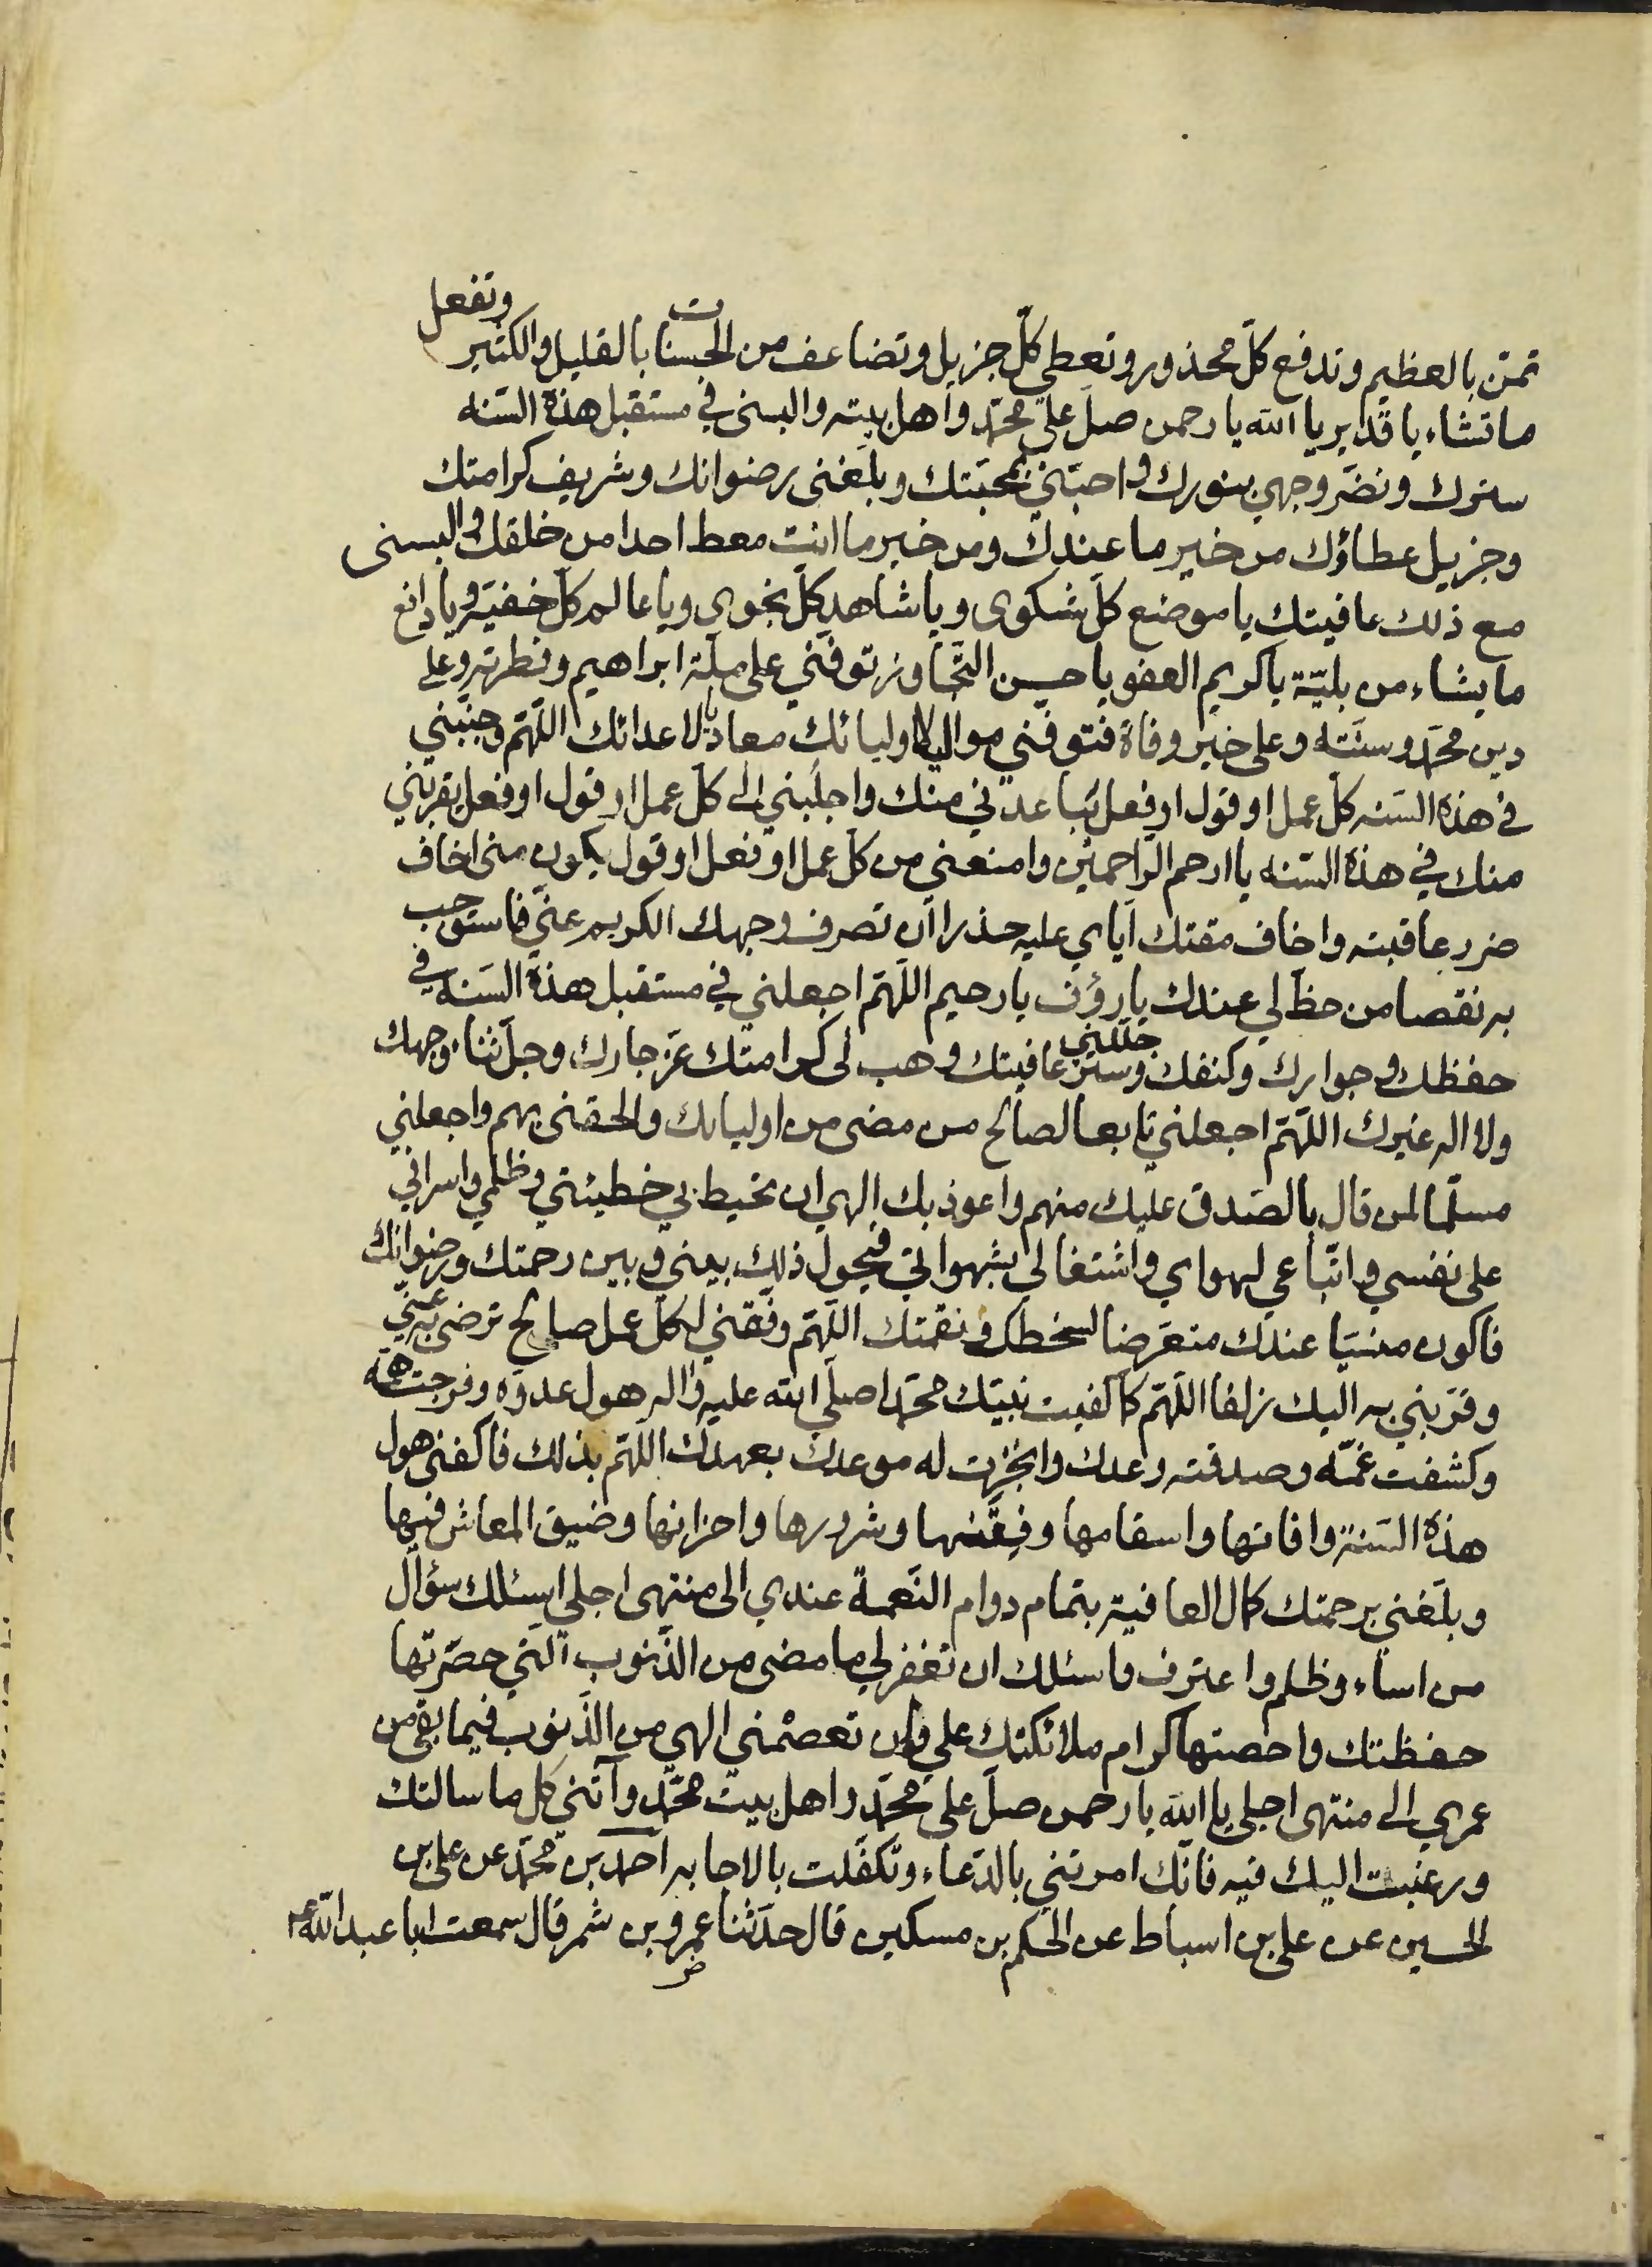 تمنّ بالعظيم وتدفع كلّ محذور وتعطي كلّ جزيل وتضاعف من الحسنات بالقليل والكثير وتفعل
ما تشاء يا قدير يا الله يا رحمن صلّ على محمّد واهل بيته والبسنى في مستقبل هذه السّنه
سترك ونضّر وجهي بنورك واحبّني بمحبّتك وبلّغنى رضوانك وشريف كرامتك
وجزيل عطاؤك من خير ما عندك ومن خير ما انت معط احدا من خلقك والبسنى
مع ذلك عافيتك يا موضع كلّ شكوى ويا شاهد كلّ نجوى ويا عالم كلّ خفيّة ويا دافع
ما يشاء من بليّة يا كريم العفو يا حسن التّجاوز توفّني على ملّة ابراهيم وفطرته وعلى
دين محمّد وسنّته وعلى خير وفاة فتوفّني مواليا لاوليائك معاديا لاعدائك اللّهمّ وجنّبني
في هذه السّنه كلّ عمل او قول او فعل يباعدني منك واجلبني الى كلّ عمل او قول او فعل يقربني
منك في هذه السّنه يا ارحم الرّاحمين وامنعني من كلّ عمل او فعل او قول يكون منى اخاف
ضرر عاقبته واخاف مقتك ايّاي عليه حذرا ان تصرف وجهك الكريم عنّي فاستوجب
به نقصا من حظّ لي عندك يا رؤف يا رحيم اللّهمّ اجعلني في مستقبل هذه السّنه في
حفظك وجوارك وكنفك وجلّلني ستر عافيتك وهب لى كرامتك عزّ جارك وجلّ ثناء وجهك
ولا اله غيرك اللّهمّ اجعلني تابعا لصالح من مضى من اوليائك والحقنى بهم واجعلني
مسلّما لمن قال بالصّدق عليك منهم واعوذ بك الهي ان تحيط بي خطيئتي وظلمي واسرافي
على نفسي واتّباعي لهواي واشتغالي بشهواتي فيحول ذلك بيني وبين رحمتك ورضوانك
فاكون منسيّا عندك متعرّضا لسخطك ونقمتك اللّهمّ وفّقني لكلّ عمل صالح ترضى به عنّي
وقرّبني به اليك زلفا اللّهمّ كما كفيت نبيّك محمّدا صلّى الله عليه واله هول عدوّه وفرجت همّه
وكشفت غمّه وصدقته وعدك وانجزت له موعدك بعهدك اللّهمّ بذلك فاكفنى هول
هذه السّنة وافاتها واسقامها وفتنها وشرورها واحزانها وضيق المعاش فيها
وبلّغنى برحمتك كمال العافية بتمام دوام النّعمة عندي الى منتهى اجلي اسئلك سؤال
من اساء وظلم واعترف واسئلك ان تغفر لي ما مضى من الذّنوب الّتي حصّرتها
حفظتك واحصتها كرام ملائكتك علي وان تعصمني الهي من الذّنوب فيما بقي من
عمري الى منتهى اجلي يا الله يا رحمن صلّ على محمّد واهل بيت محمّد وآتني كل ما سالتك
ورغبت اليك فيه فانّك امرتني بالدّعاء وتكفّلت بالاجابه احمد بن محمّد عن على بن
الحسين عن على بن اسباط عن الحكم بن مسكين قال حدّثنا عمرو بن شمر قال سمعت ابا عبد الله ع